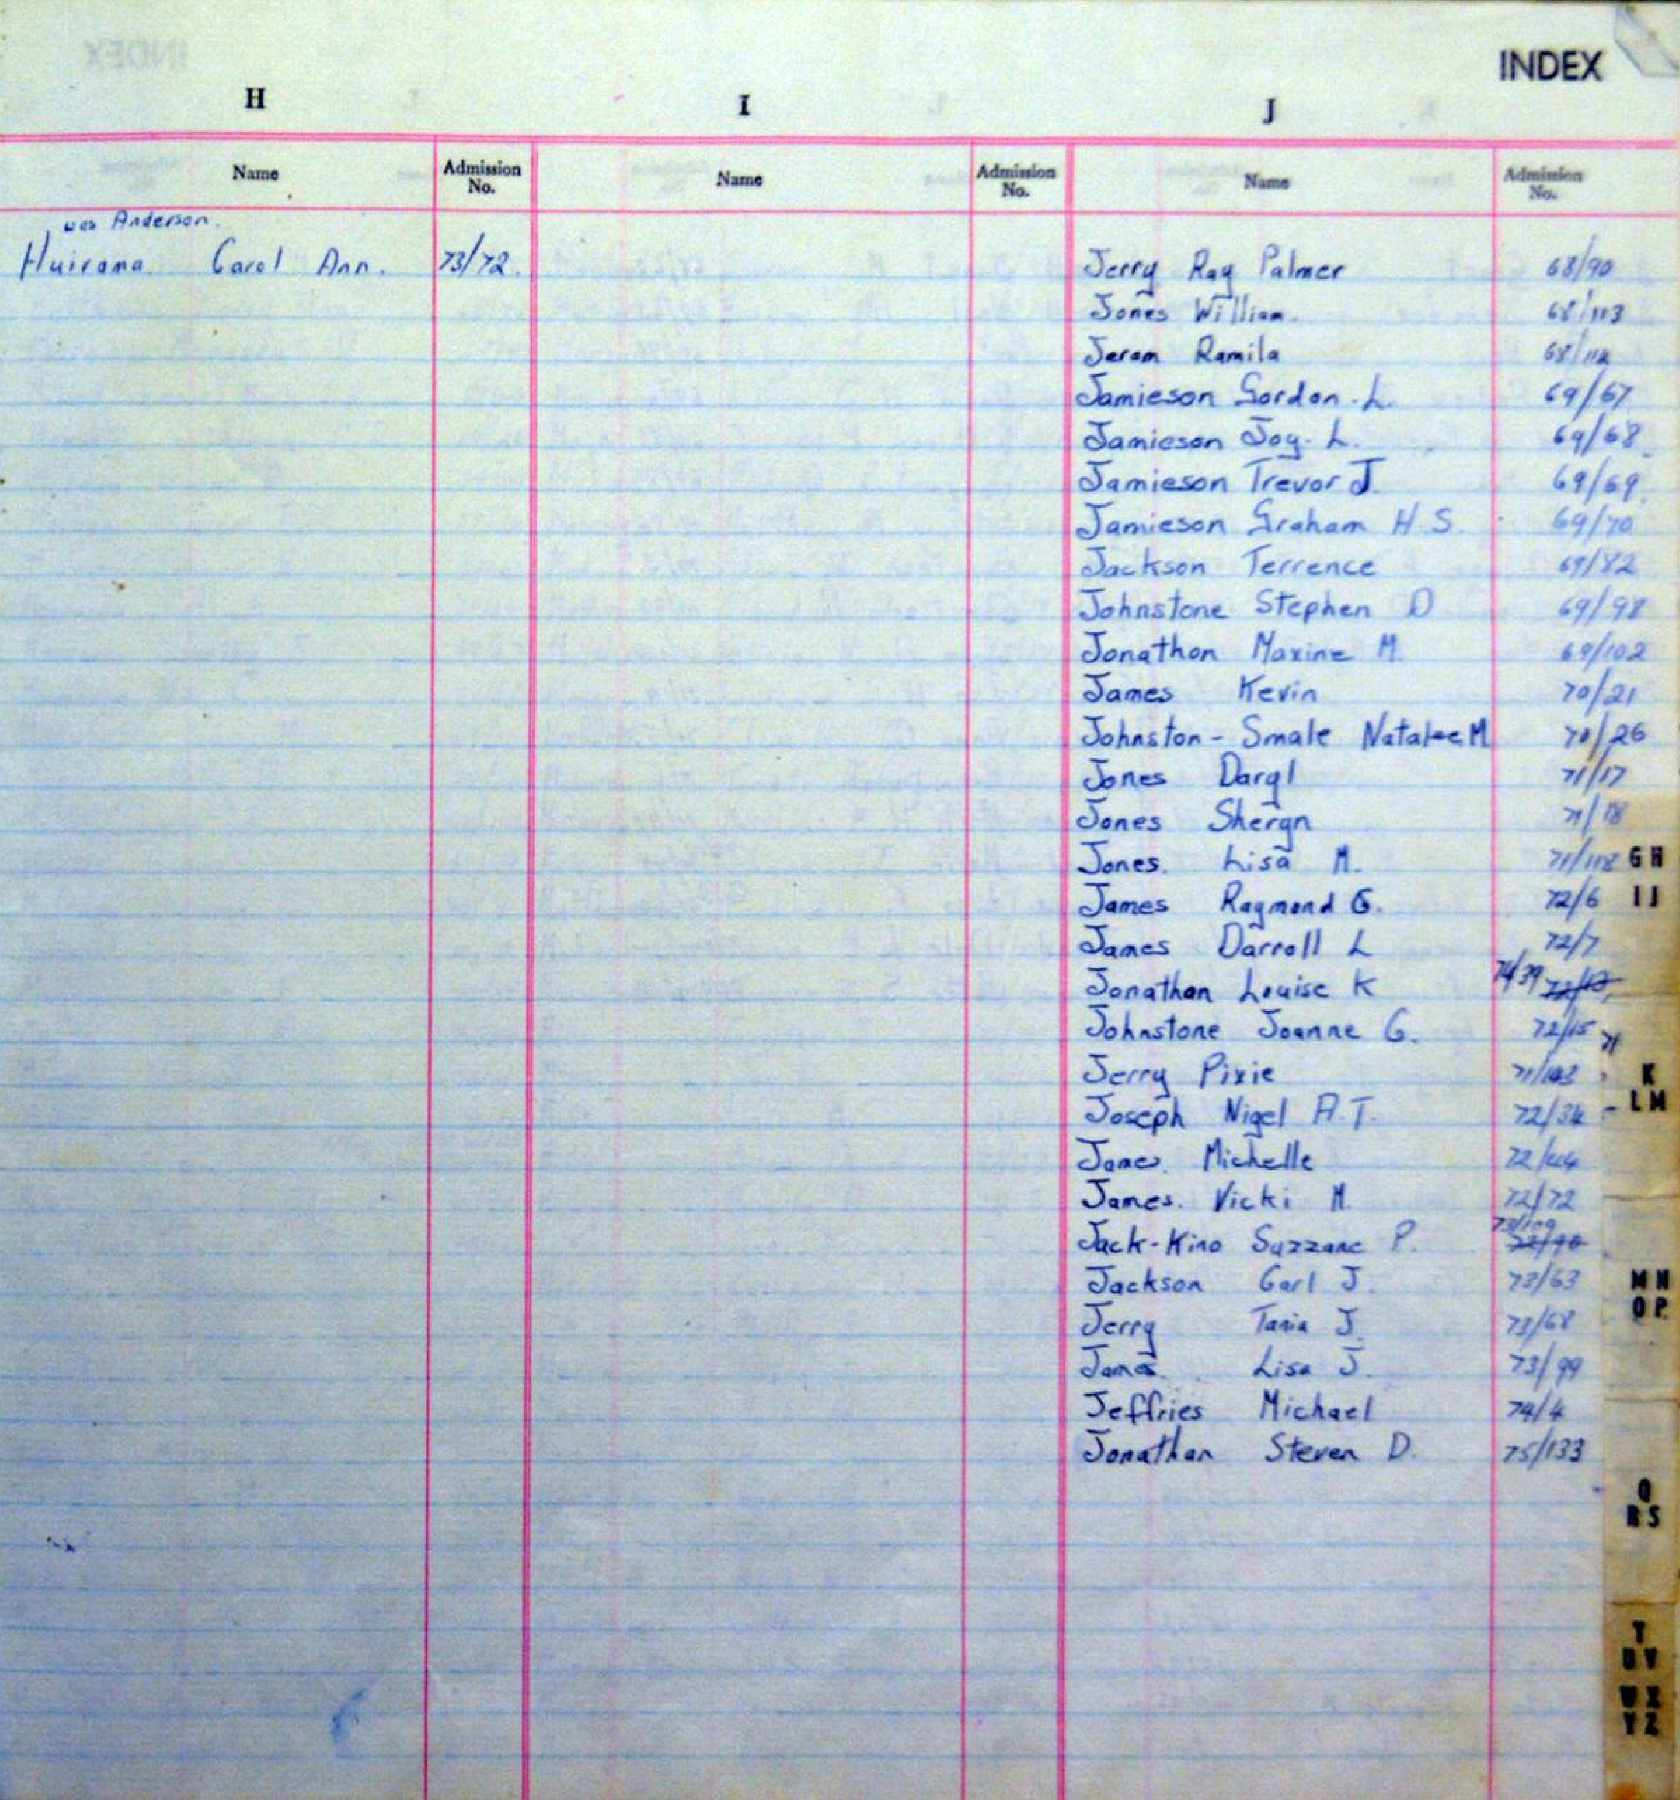 INDEX
H I J
Name Admission No. Name Admission No. Name Admission No.
was Anderson.
Huirama Carol Ann. 73/72.
Jerry Ray Palmer 68/90
Jones William. 68/113
Jeram Ramila 68/112
Jamieson Gordon. L. 69/67
Jamieson Joy. L. 69/68
Jamieson Trevor J. 69/69
Jamieson Graham H.S. 69/70
Jackson Terrence 69/82
Johnstone Stephen D 69/98
Jonathon Maxine M. 69/102
James Kevin 70/21
Johnston - Smale Natalee M 70/26
Jones Daryl 71/17
Jones Sheryn 71/18
Jones. Lisa M. 71/118
James Raymond G. 72/6
James Darroll L 72/7
Jonathan Louise K 74/39 72/13
Johnstone Joanne G. 72/15
71
Jerry Pixie 71/103
Joseph Nigel A.T. 72/34
Michelle 72/44
James. Vicki M. 72/72
73/109
Jack-Kino Suzzane P. 72/90
Jackson Carl J. 73/63
Jerry Tania J. 73/68
Lisa J. 73/99
Jeffries Michael 74/4
Jonathan Steven D. 75/133
G H
I J
K
L M
M N
O P
Q
R S
T
U V
W X
Y Z